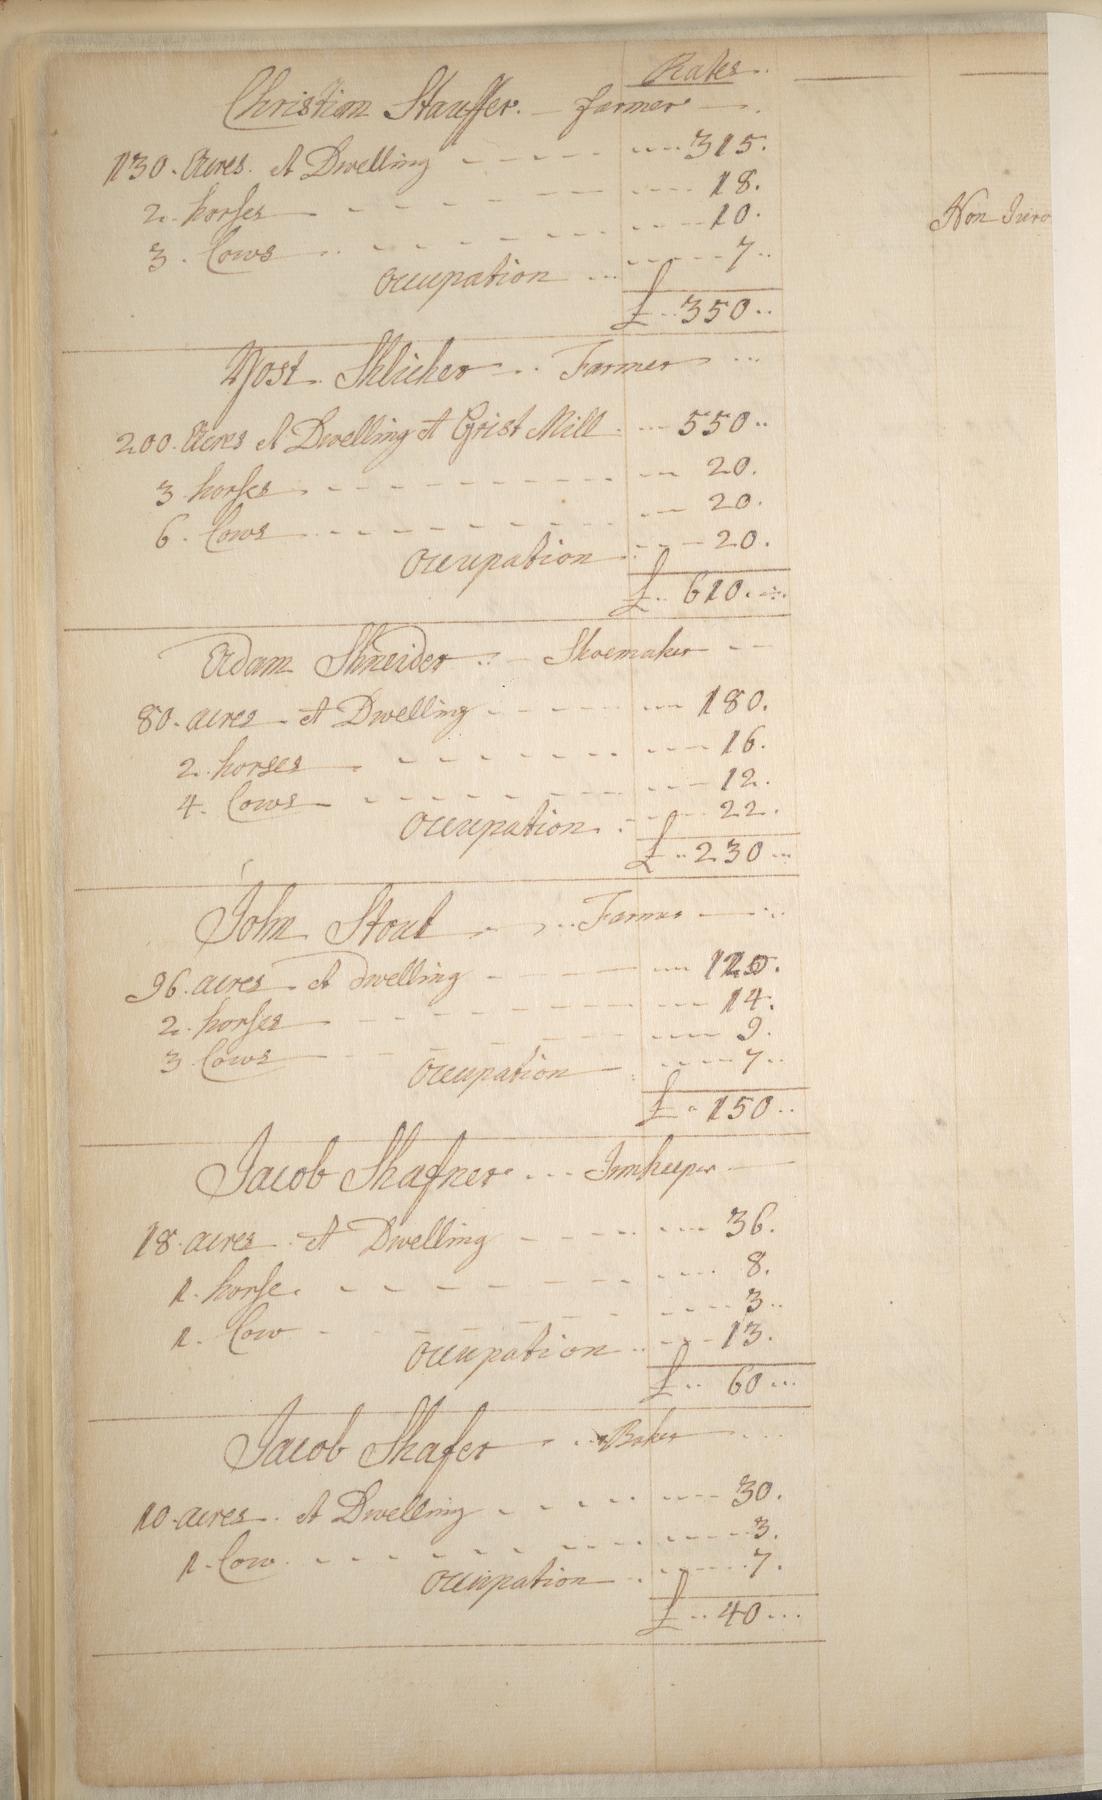 Rates
Christian Stauffer. Farmer
130. Acres. A Dwelling 315.
2. horses 18.
3. Cows 10.
Occupation 7
£ 350
Yost Shlicher Farmer
200. Acres A Dwelling A Grist Mill 550
3 horses 20.
6. Cows 20.
Occupation 20.
£ 610.
Adam Shneider Shoemaker
80. acres A Dwelling 180.
2. horses 16.
4. Cows 12.
Occupation 22.
£ 230
John Stout Farmer
96. acres A Dwelling 120.
2. horses 14.
3 Cows 9.
Occupation 7
£ 150
Jacob Shafner Innkeeper
18. acres A Dwelling 36.
1. horse. 8.
1. Cow 3
Occupation 13.
£ 60
Jacob Shafer Baker
10. acres. A Dwelling 30.
1. Cow. 3.
Occupation 7.
£ 40
Non